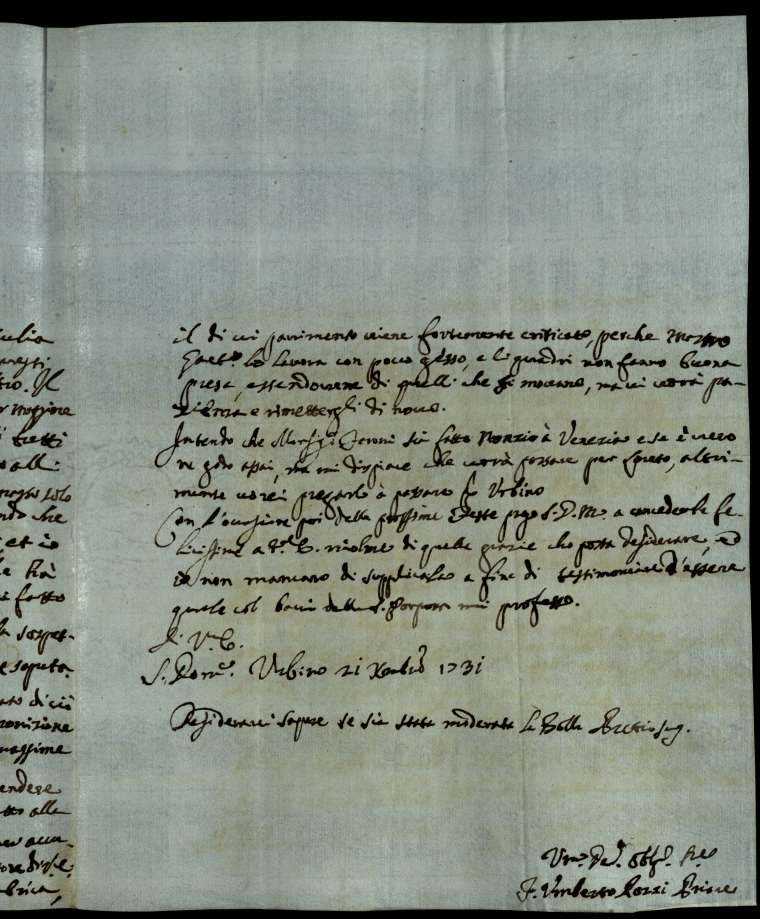 il di cui pavimento viene fortemente criticato, perche Mastro
Gaet.º lo lavora con poco gesso, e li quadri non fanno buona
presa, essendovene di quelli che si movano, ma ci vorrà pa-
zienza e rimettergli di novo.
Intendo che Monsig.r sia fatto Nonzio à Venezia e se è vero
ne godo assai, ma mi dispiace che vorrà passare per Loreto, altri-
mente vorei pregarlo à passare per Urbino
Con l'occasione poi delle prossime Feste prego S.D.M. a concederle fe-
licissime a V.ra E. ricolme di quelle grazie che possa desiderare, ed
io non mancarò di supplicarla a fine di testimoniare d'essere
quale col bacio della S. Porpora mi professo.
Di V.E.
S. Dom.º Urbino 21 Xembrõ 1731
Desiderarei sapere se sia stata moderata la Bolla
F. Umberto
ulia
tio. Il
Maggiore
tutti
alli
solo
che
et io
le hà
fatto
sospet-
saputa
di ciò
massime
endere
alle
brica,